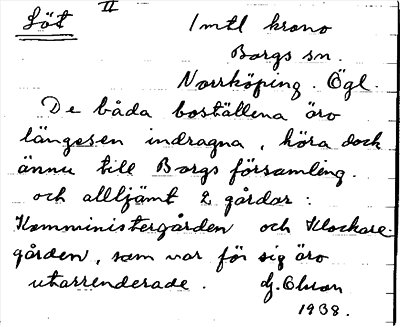 Löt II 1 mtl krono
Borgs sn.
Norrköping. Ögl.
De båda boställena äro
längesen indragna, höra dock
ännu till Borgs församling.
och alltjämt 2 gårdar:
Komministergården och Klockare-
gården, som var för sig äro
utarrenderade. Olsson
1938.